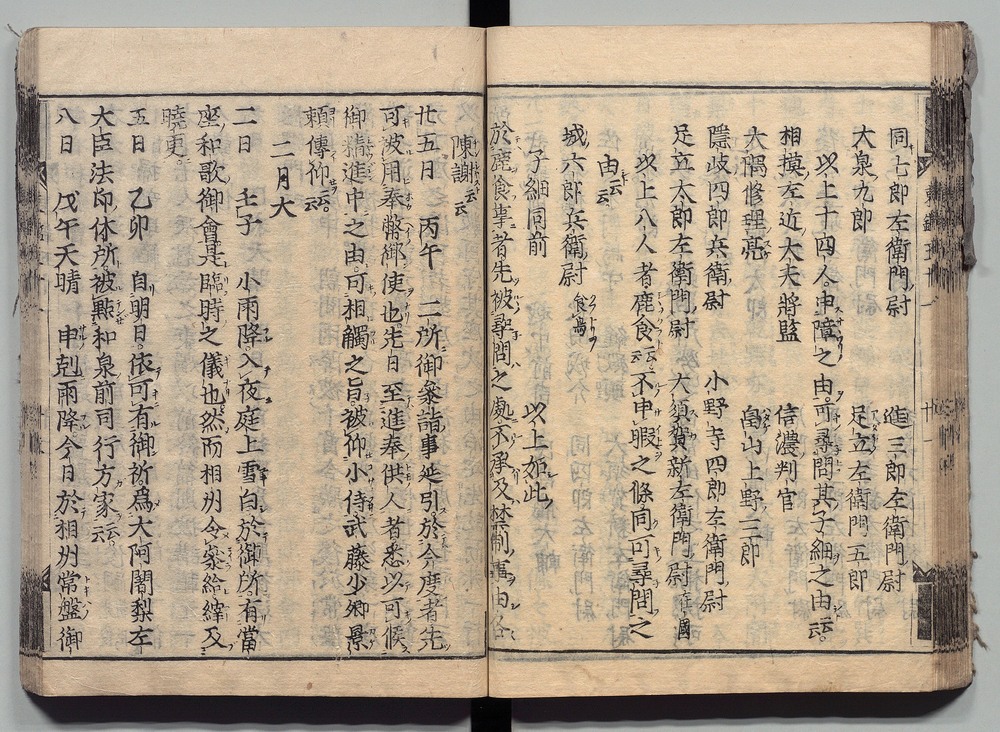 同七郎左衛門尉 進三郎左衛門尉
大泉九郎 足立左衛門五郎
以上十四人申障之由可尋問其子細之由云云
相摸左近大夫將監 信濃判官
大隅修理亮 畠山上野三郎
隱岐四郎兵衛尉 小野寺四郎左衛門尉
足立太郎左衛門尉 大須賀新左衛門尉
以上八人者鹿食云云不申暇之條向可尋問之
由云云
城六郎兵衛尉 食鳥 以上如此
子細同前
於鹿食輩者先被尋問之處不承及禁制事由各
陳謝云云
廿五日 丙午 二所御參詣事延引於今度者先
可被用奉幣御使也先日至進奉供人者悉以可候
御精進中之由可相觸之旨被仰小侍武藤少卿景
頼傳仰云云
二月大
二日 壬子 小雨降入夜庭上雪白於御所有當
座和歌御會是臨時之儀也然而相州令參給縡及
曉更
五日 乙卯 自明日依可有御祈爲大阿闍梨左
大臣法印休所被點和泉前司行方家云云
八日 戊午天晴 申剋雨降今日於相州常盤御